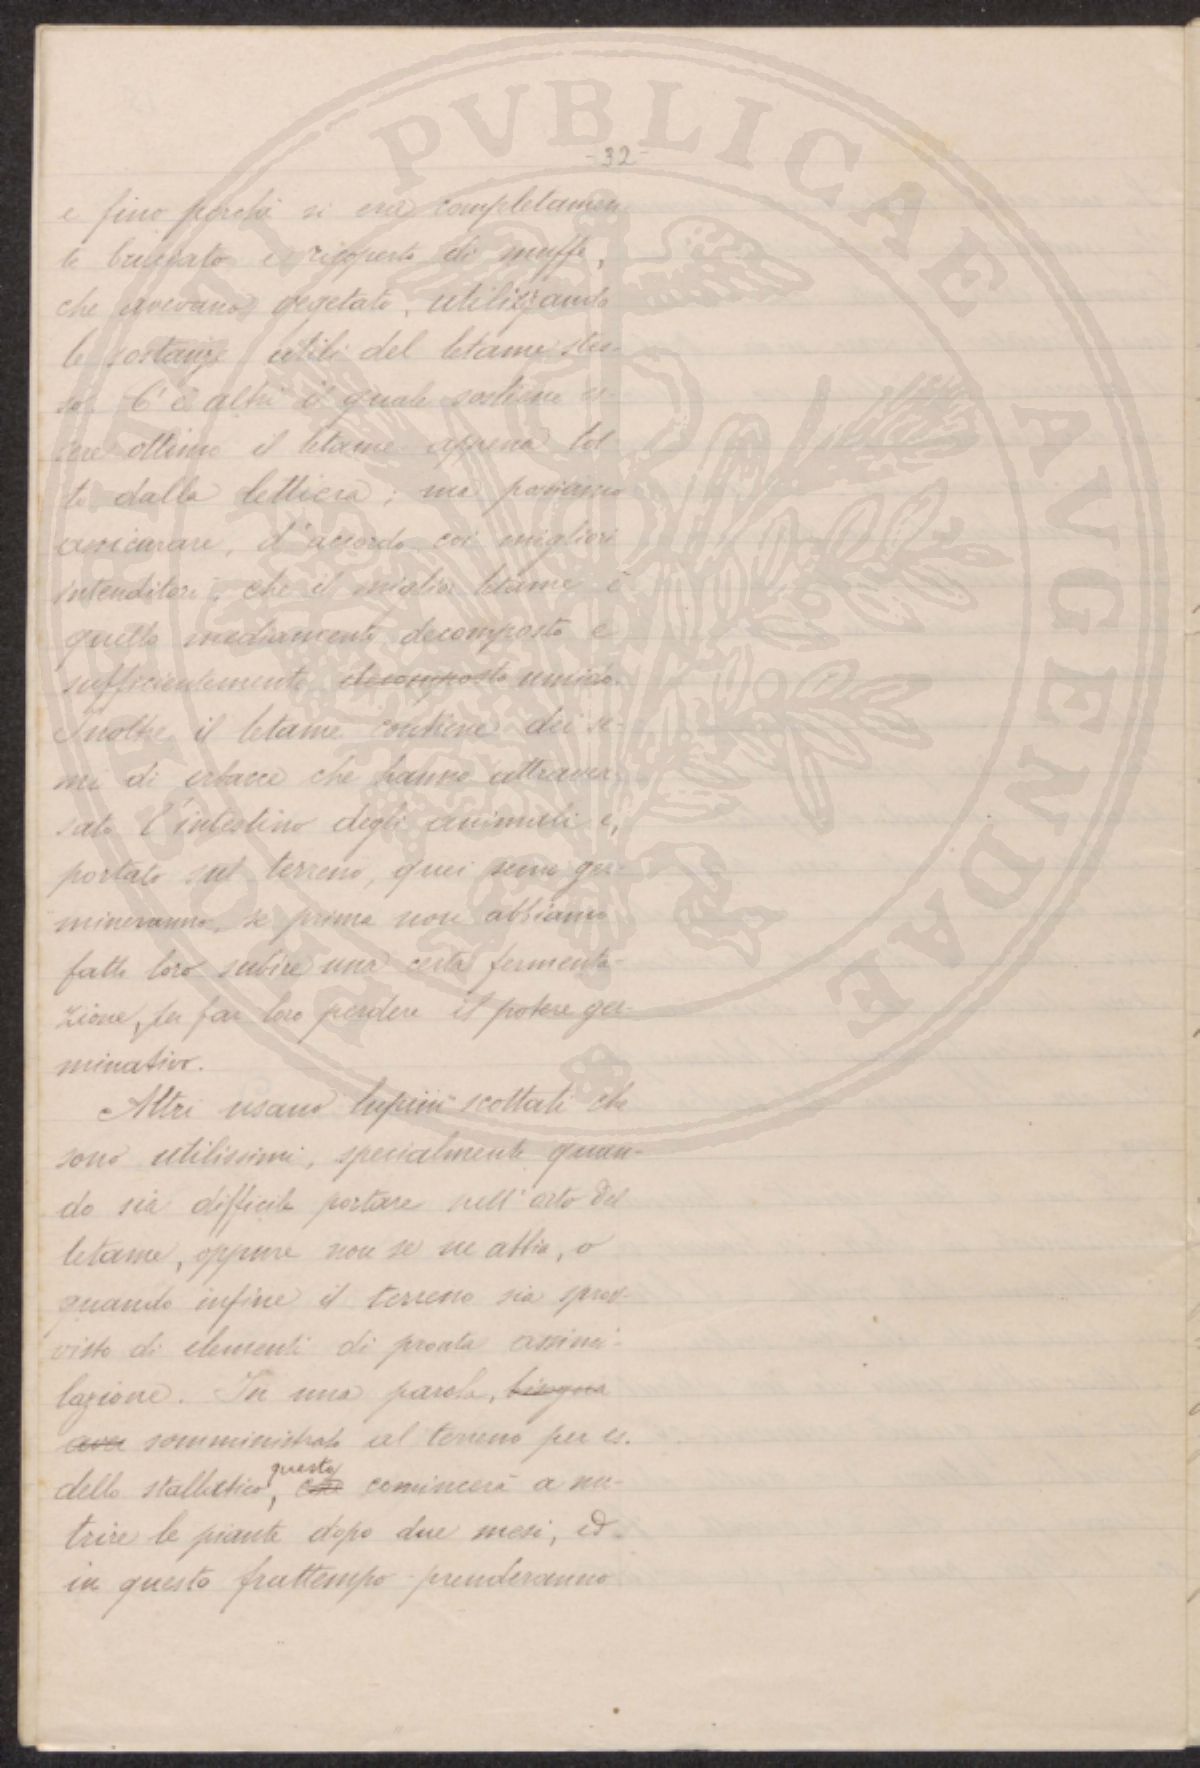 -32-
e fino perchè si era completamen
te bruciato e ricoperto di muffe,
che avevano vegetato, utilizzando
le sostanze utili del letame stes-
so. C'è altri il quale sostiene es-
sere ottimo il letame appena tol-
to dalla lettiera; ma possiamo
assicurare, d'accordo coi migliori
intenditori, che il miglior letame è
quello mediamente decomposto e
sufficientemente decomposto umido.
Inoltre il letame contiene dei se-
mi di erbacce che hanno attraver-
sato l'intestino degli animali e,
portato sul terreno, quei semi ger-
mineranno, se prima non abbiamo
fatto loro subire una certa fermenta-
zione, per far loro perdere il potere ger-
minativo.
Altri usano lupini scottati che
sono utilissimi, specialmente quan-
do sia difficile portare nell'orto del
letame, oppure non se ne abbia, o
quando infine il terreno sia sprov-
visto di elementi di pronta assimi-
lazione. In una parola, bisogna
aver somministrato al terreno per es.
dello stallatico, questo
che comincerà a nu-
trire le piante dopo due mesi, ed
in questo frattempo prenderanno
PVBLICAE AVGENDAE